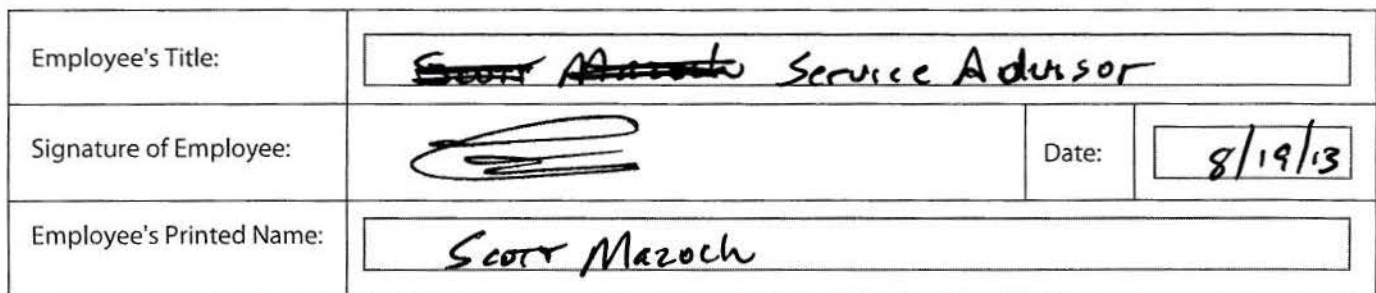 Employee's Title: Scott Mazoch Service Advisor
Signature of Employee: Date: 8/19/13
Employee's Printed Name: Scott Mazoch